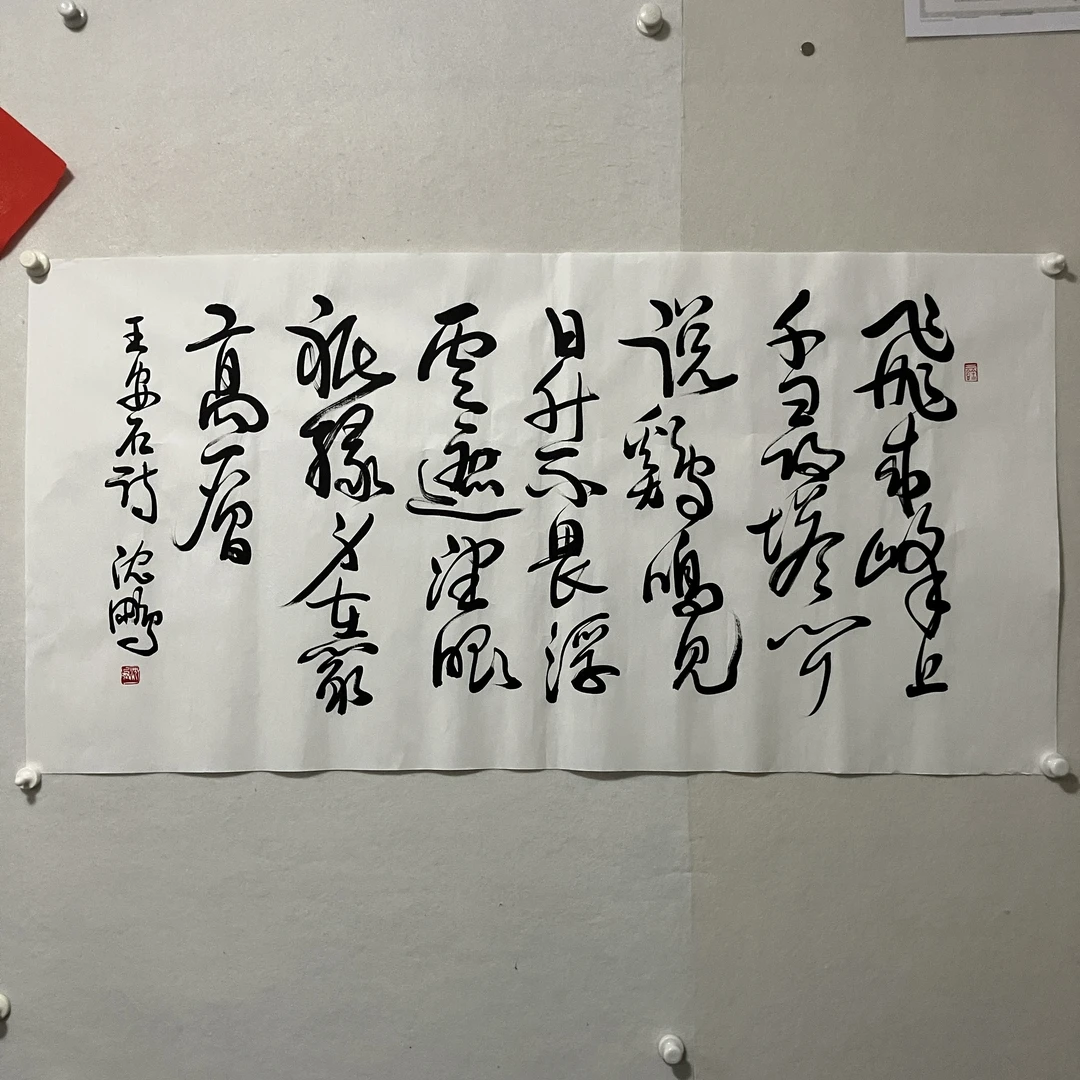 飛來峰上
千尋塔聞
説鷄鳴見
日升不畏浮
雲遮望眼
祇緣身在最
高層
王安石詩 沈鵬